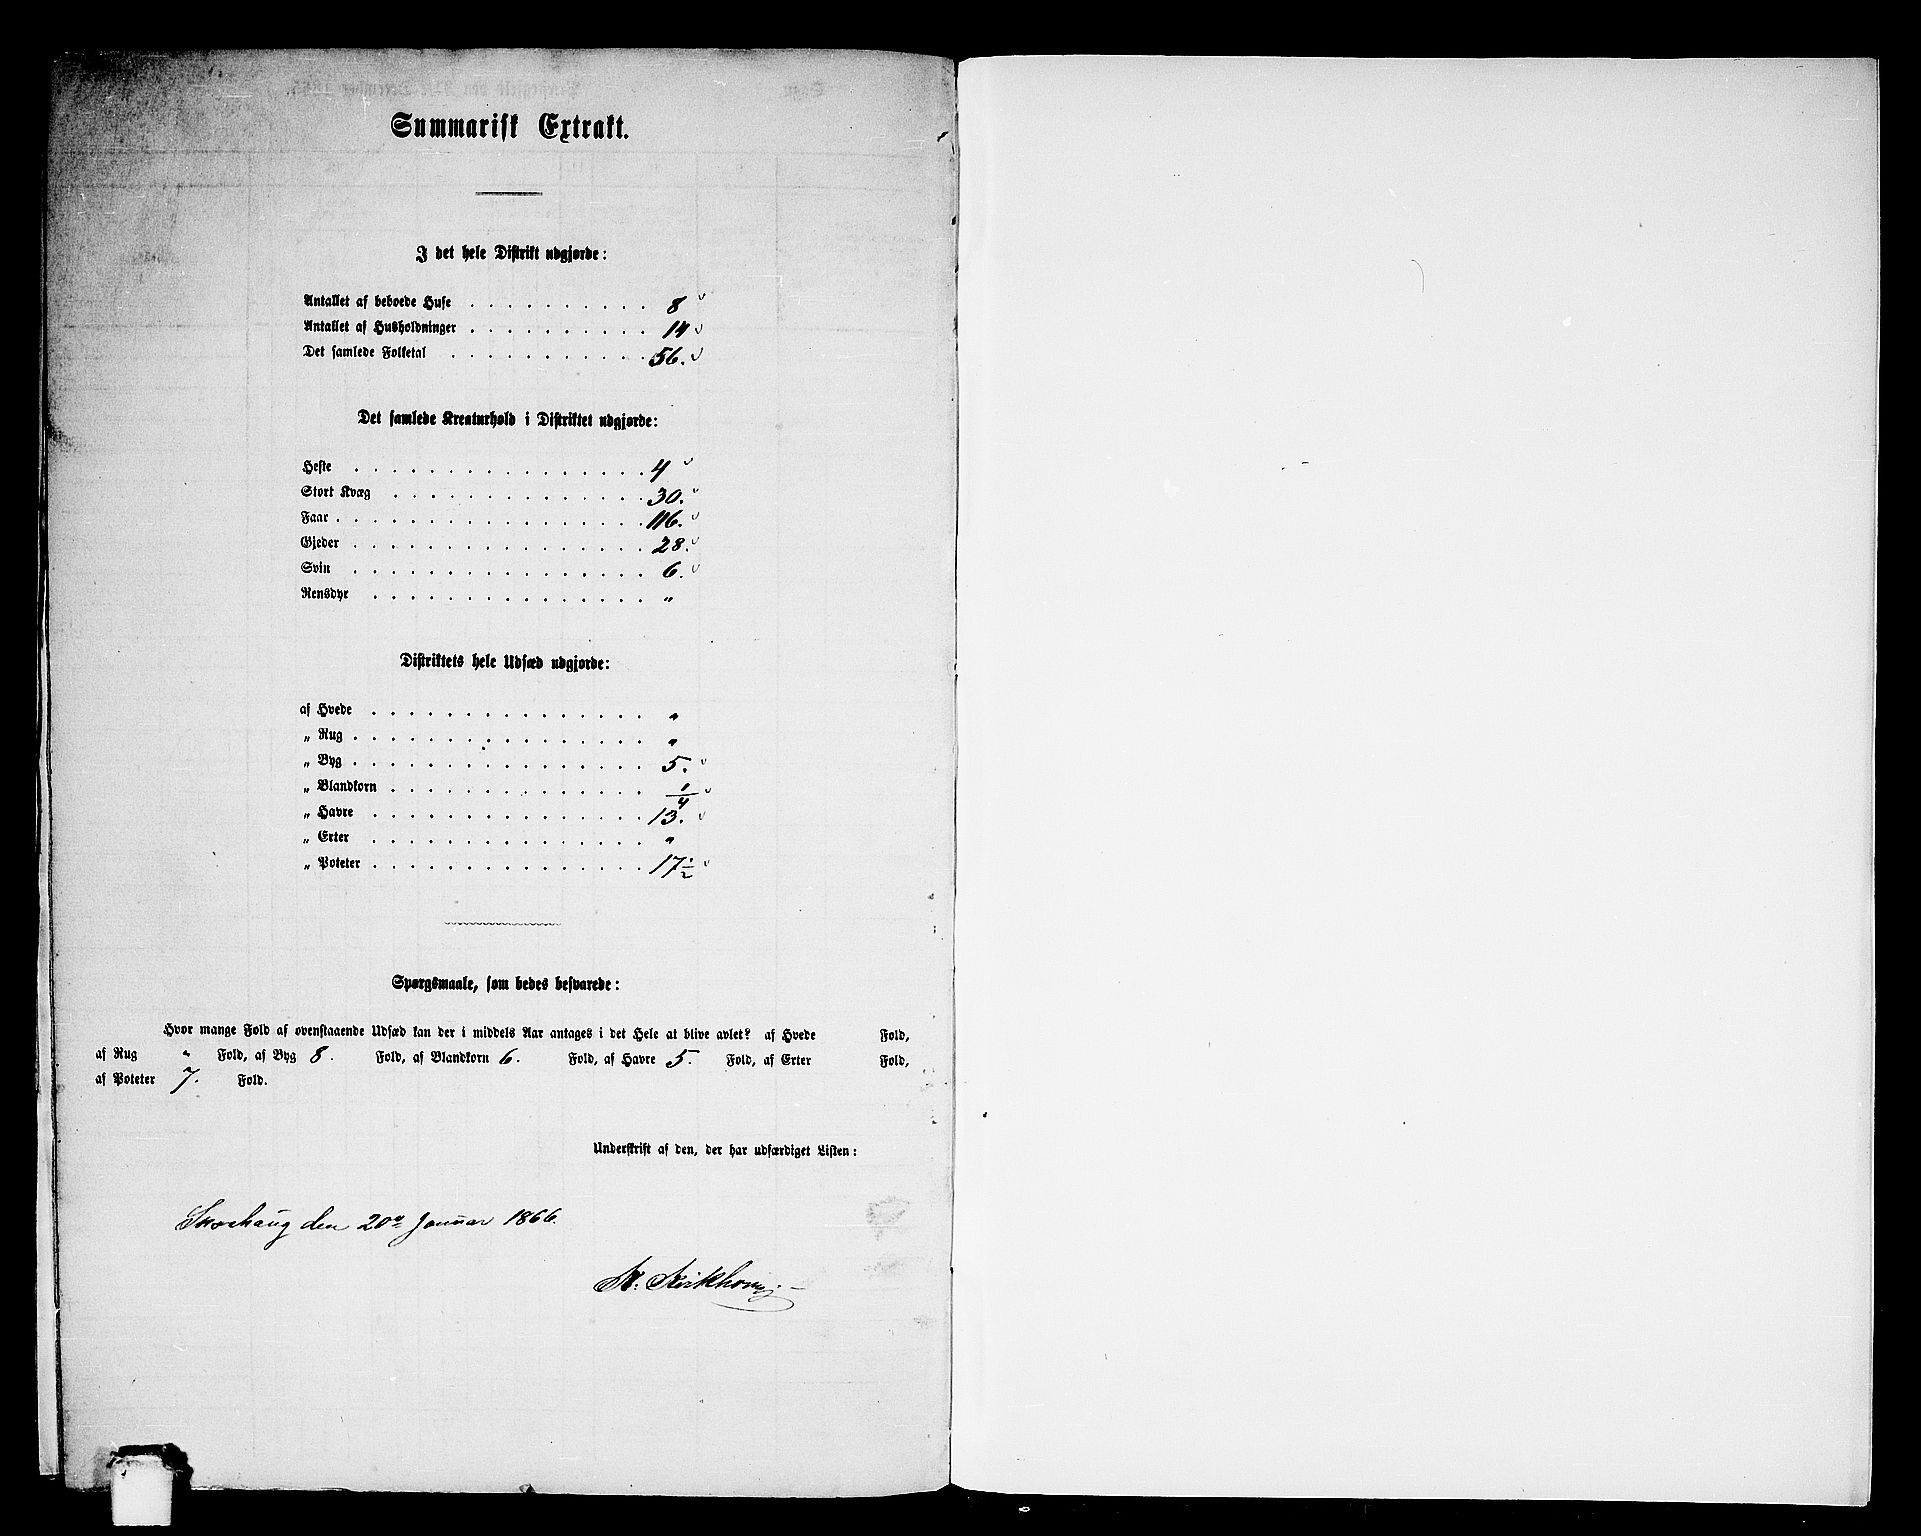 Summarisk Extrakt.
I det hele Distrikt udgjorde:
Antallet af beboede Huse . . . . . . . . . . 8
Antallet af Husholdninger . . . . . . . . . . 14
Det samlede Folketal . . . . . . . . . . . 56.
Det samlede Kreaturhold i Distriktet udgjorde:
Heste . . . . . . . . . . . . . . . . 4
Stort Kvæg . . . . . . . . . . . . . . 30.
Faar . . . . . . . . . . . . . . . . . 116.
Gjeder . . . . . . . . . . . . . . . . 28.
Svin . . . . . . . . . . . . . . . . 6.
Rensdyr . . . . . . . . . . . . . . . "
Distriktets hele Udsæd udgjorde:
af Hvede . . . . . . . . . . . . . . . "
„ Rug . . . . . . . . . . . . . . . . "
„ Byg . . . . . . . . . . . . . . . . 5.
„ Blandkorn . . . . . . . . . . . . . . 1/4
„ Havre . . . . . . . . . . . . . . . 13.
„ Erter . . . . . . . . . . . . . . . "
„ Poteter . . . . . . . . . . . . . . . 17½
Spørgsmaale, som bedes besvarede:
Hvor mange Fold af ovenstaaende Udsæd kan der i middels Aar antages i det Hele at blive avlet? af Hvede Fold,
af Rug " Fold, af Byg 8. Fold, af Blandkorn 6. Fold, af Havre 5. Fold, af Erter Fold,
af Poteter 7. Fold.
Underskrift af den, der har udfærdiget Listen:
den 20de Januar 1866.